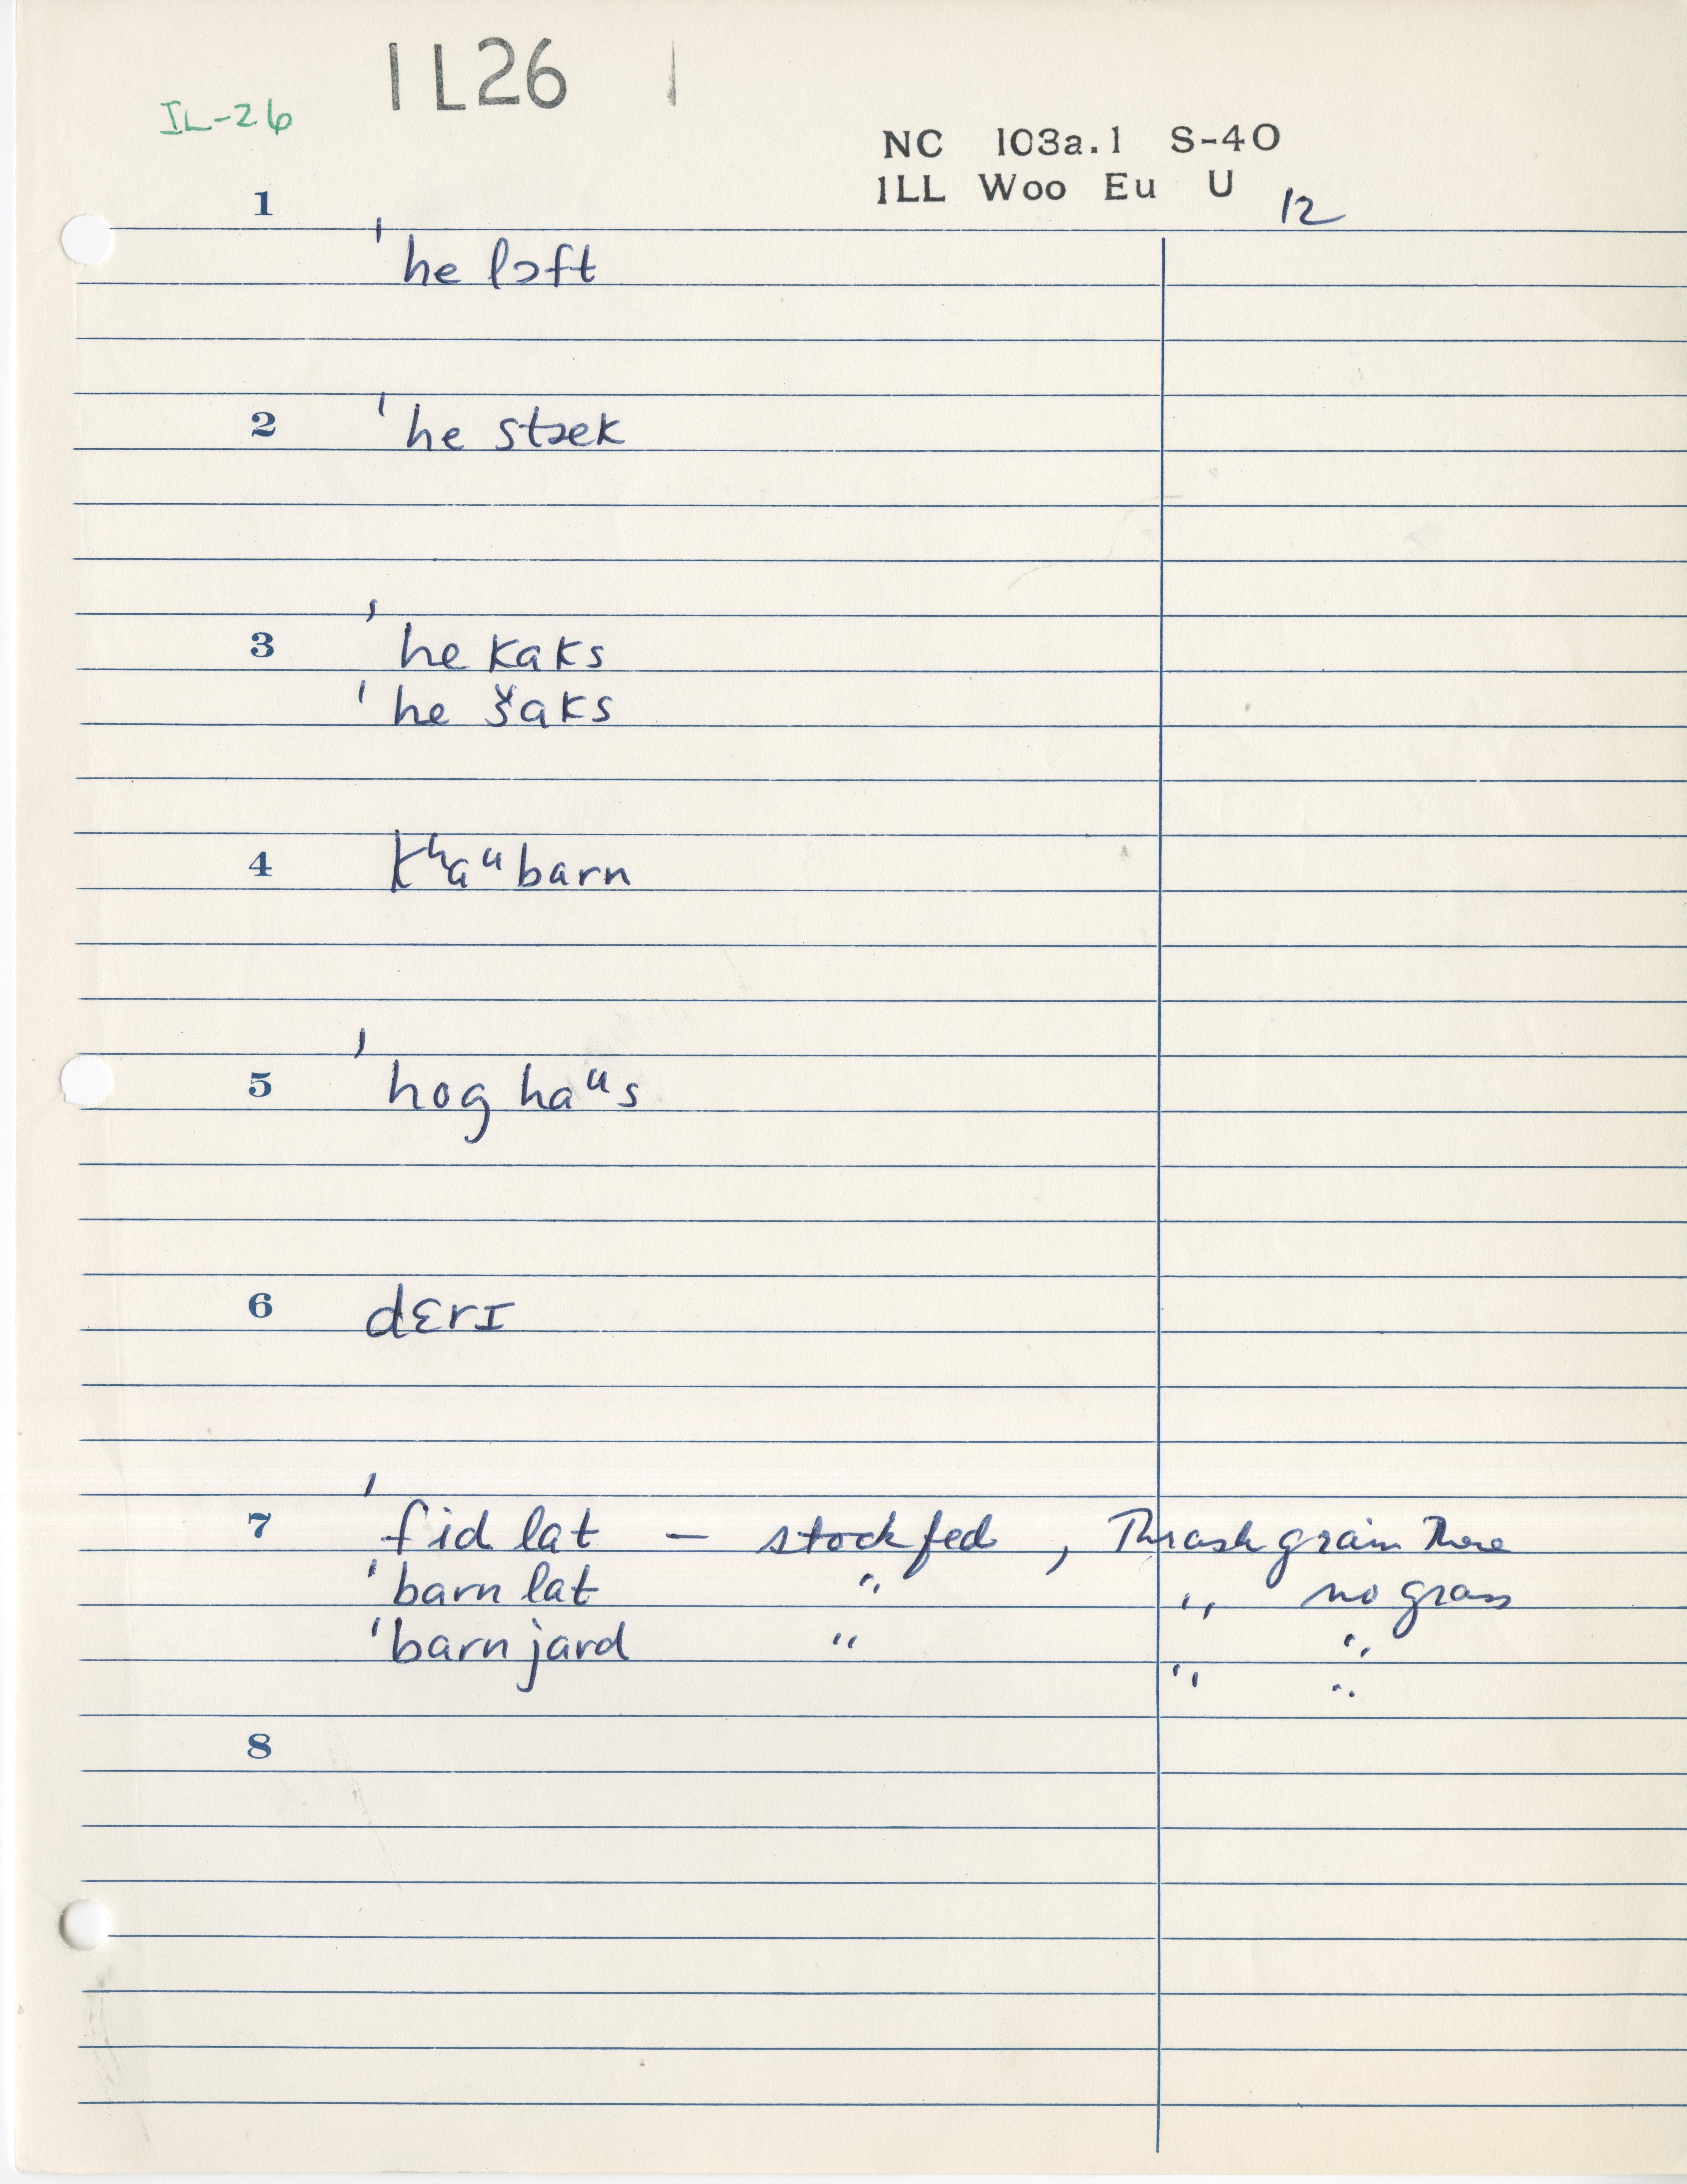 IL26 1
IL-26
NC 103a.1 S-40
ILL Woo Eu U 12
1 ˈhe lɔft
2 ˈhe stæk
3 ˈhe kaks
ˈhe šaks
4 kʰaᵘbarn
5 ˈhog haᵘs
6 dɛrɪ
7 ˈfid lat — stock fed, Thrash grain There
ˈbarn lat " " no grass
ˈbarn jard " "
" "
8